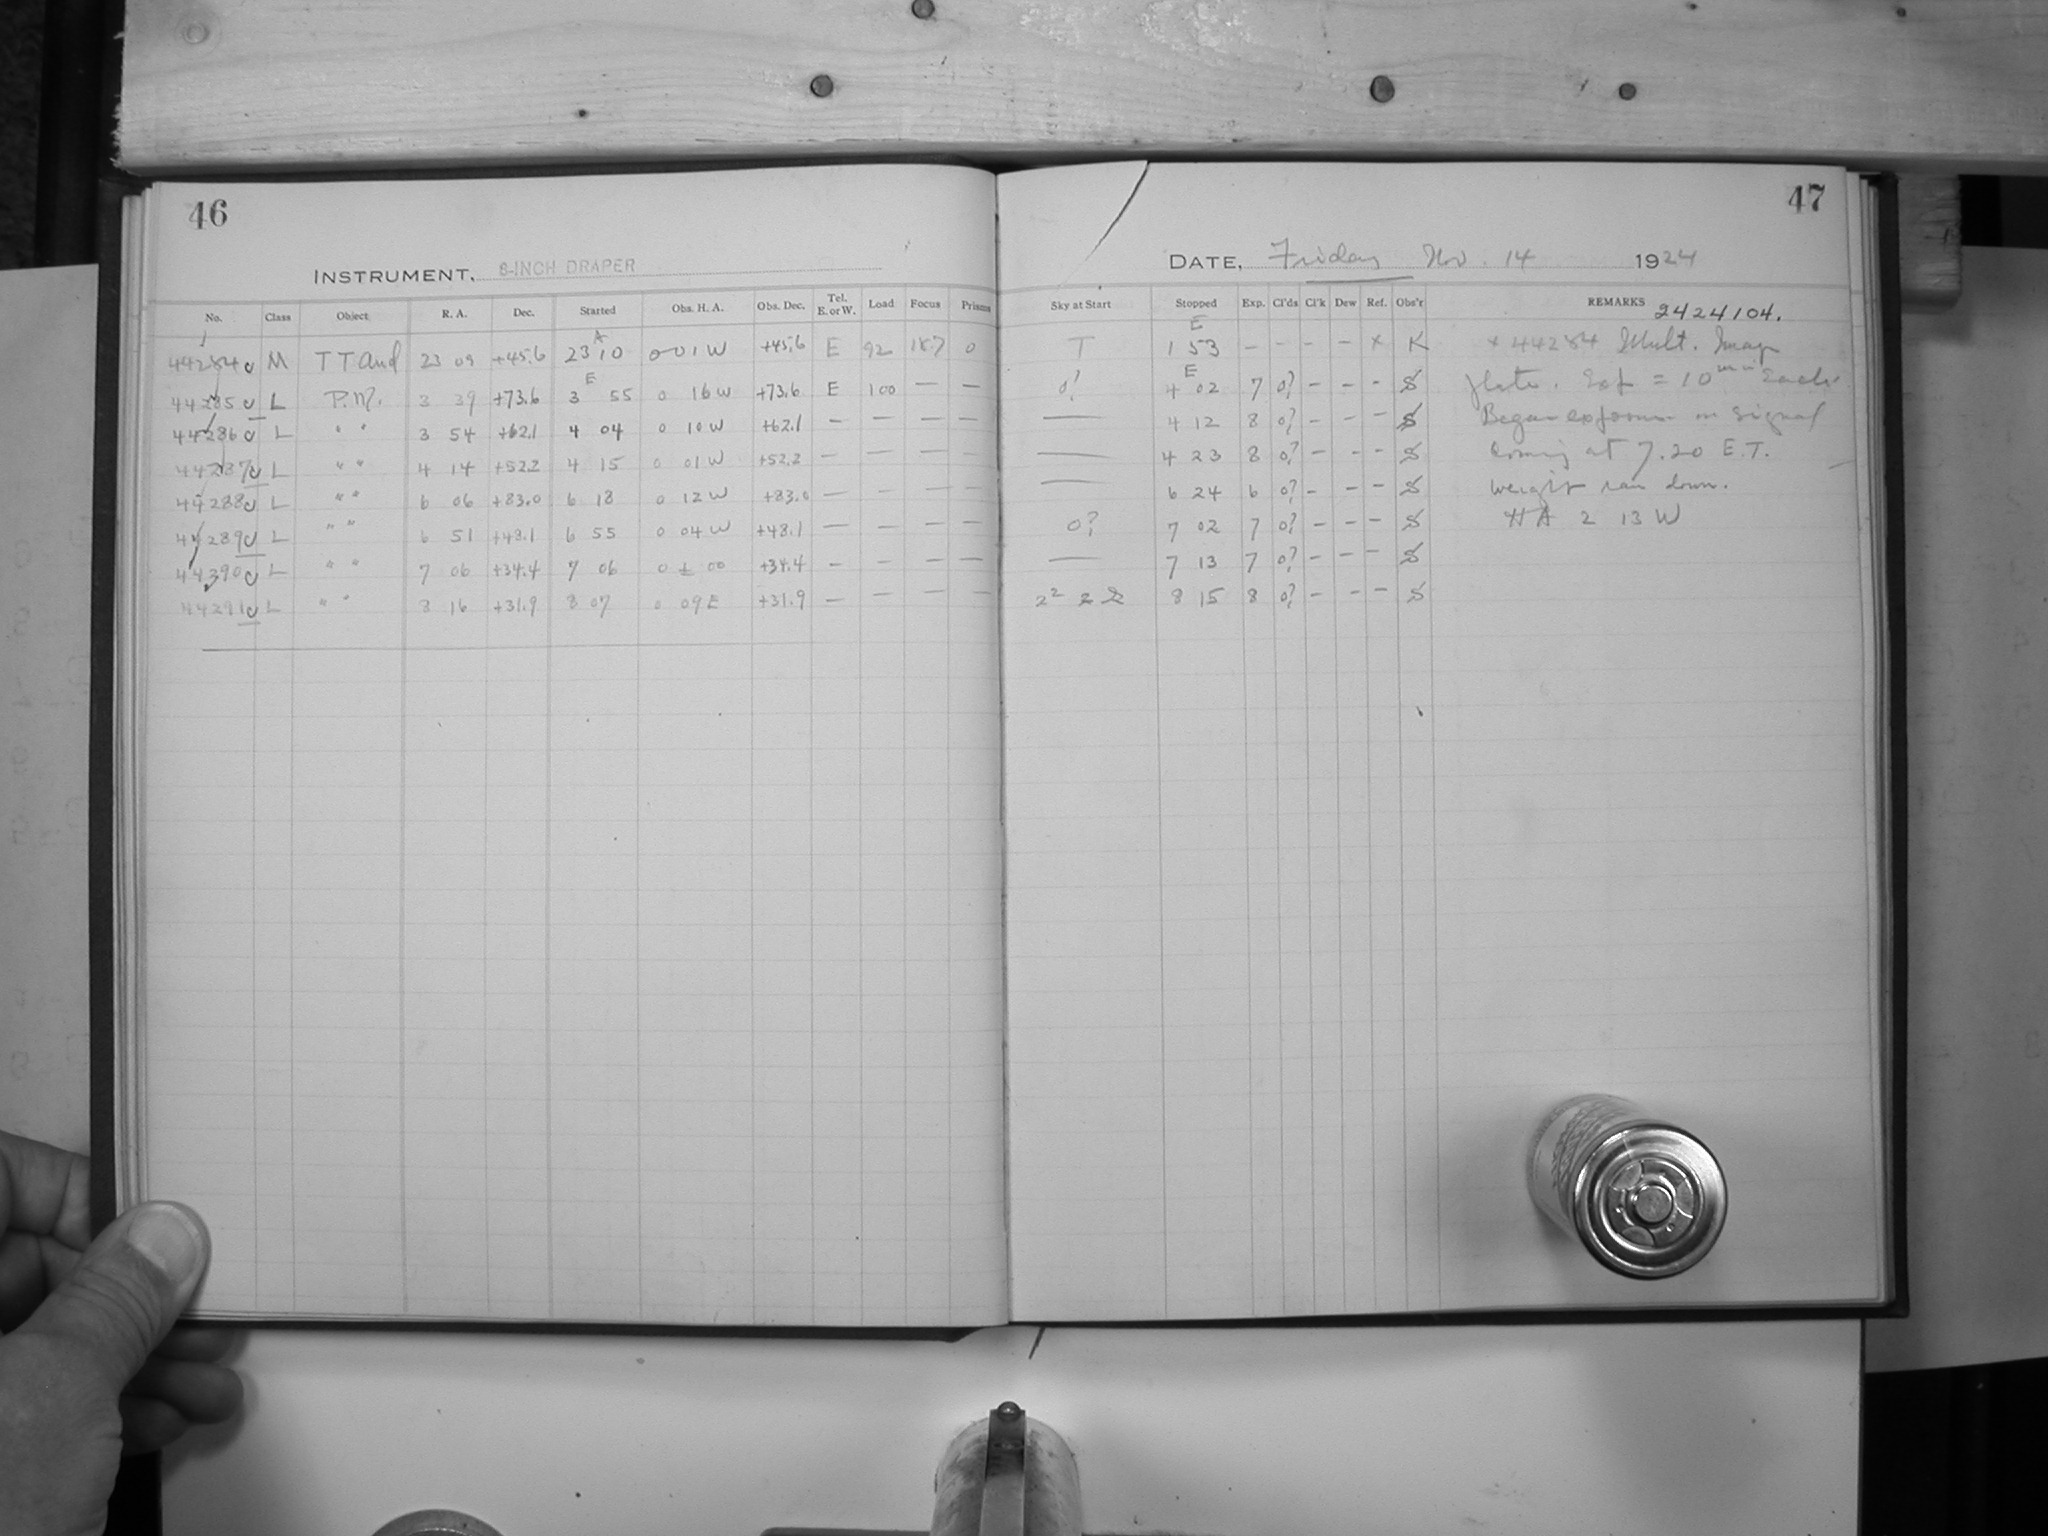 46
INSTRUMENT, 8-INCH DRAPER
No. Class Object R. A. Dec. Started Obs. H. A. Obs. Dec. Tel. E. or W. Load Focus Prisms
44284 M TT And 23 09 +45.6 A 23 10 0 01 W +45.6 E 92 18.7 0
44285 L P.N. 3 39 +73.6 E 3 55 0 16 W +73.6 E 100 — —
44286 L " " 3 54 +62.1 4 04 0 10 W +62.1 — — — —
44287 L " " 4 14 +52.2 4 15 0 01 W +52.2 — — — —
44288 L " " 6 06 +83.0 6 18 0 12 W +83.0 — — — —
44289 L " " 6 51 +48.1 6 55 0 04 W +48.1 — — — —
44390 L " " 7 06 +34.4 7 06 0 ± 00 +34.4 — — — —
44291 L " " 8 16 +31.9 8 07 0 09 E +31.9 — — — —
47
DATE, Friday Nov. 14 1924
Sky at Start Stopped Exp. Cl'ds Cl'k Dew Ref. Obs'r REMARKS 2424104.
T E 1 53 – – – – x K x 44284 Mult. Image
0? E 4 02 7 0? – – – S plate. Exp = 10 min Each
— 4 12 8 0? – – – S Began exposure on signal
— 4 23 8 0? – – – S coming at 7.20 E.T.
— 6 24 6 0? – – – S weight ran down.
0? 7 02 7 0? – – – S HA 2 13 W
— 7 13 7 0? – – – S
8 15 8 0? – – – S